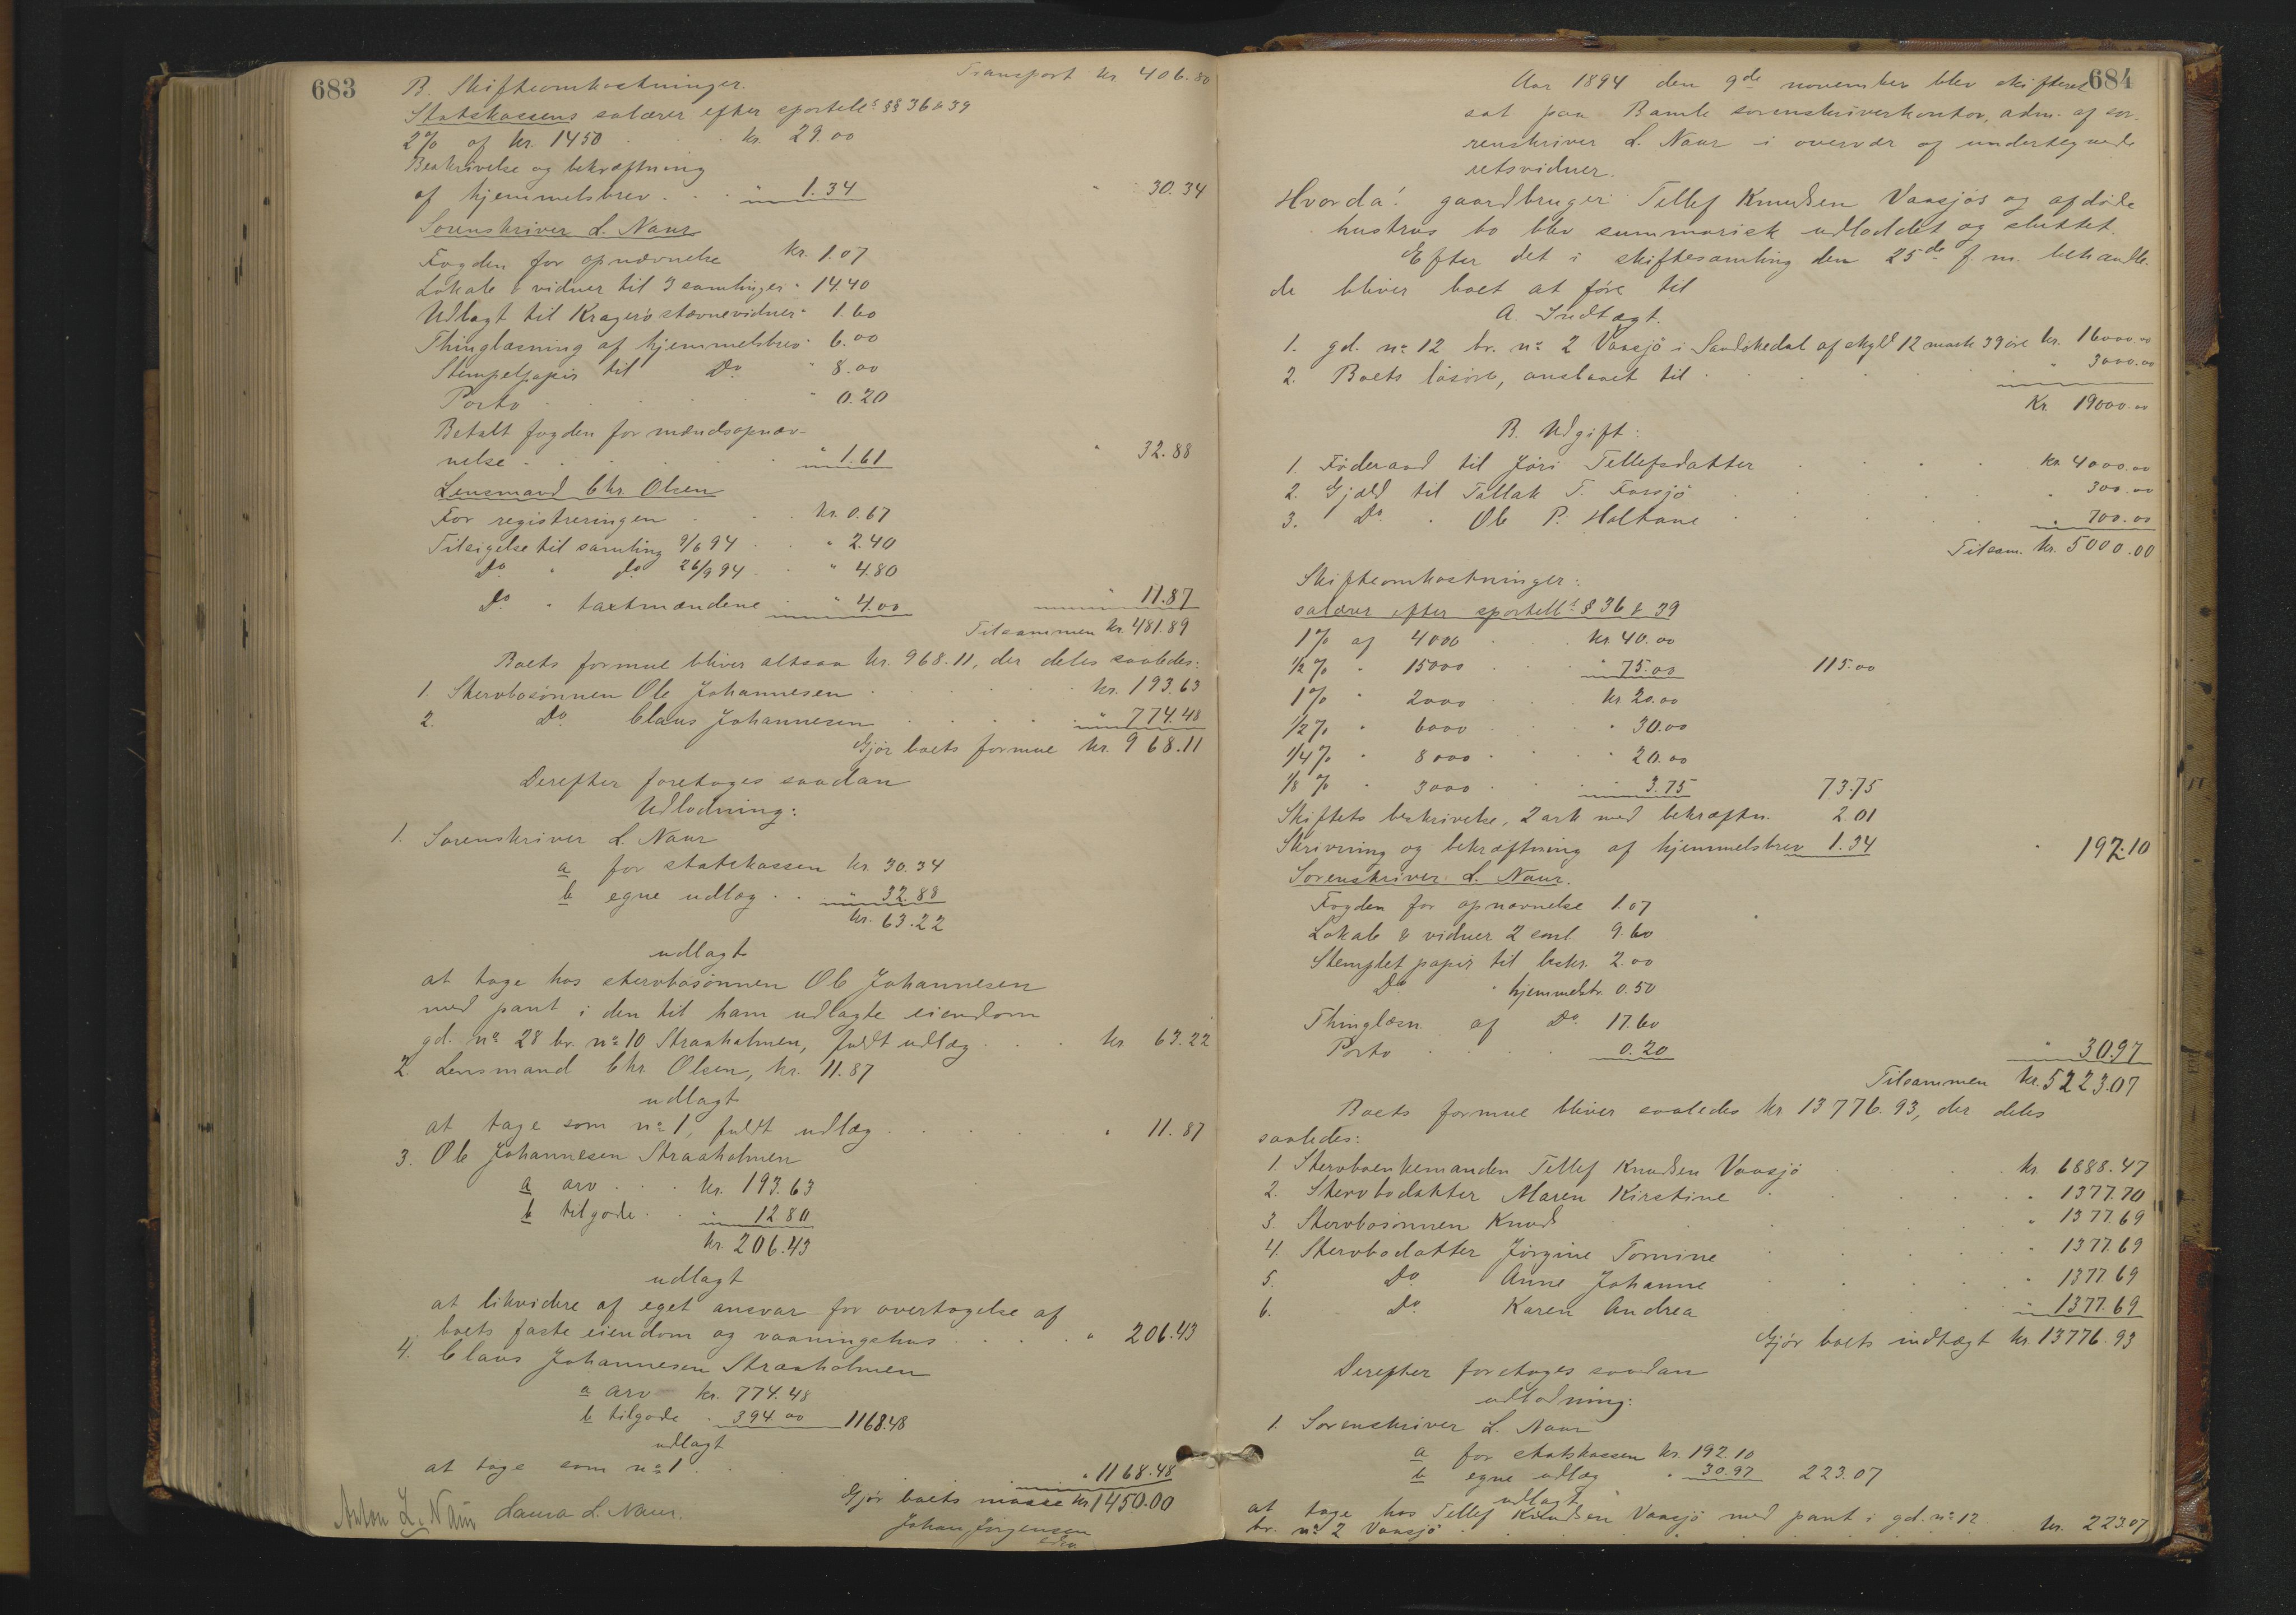 683
Transport kr. 406.80
B. Skifteomkostninger.
Statskassens salærer efter sportell: §§ 36 & 39
2% af kr. 1450 . . kr. 29.00
Beskrivelse og bekræftning
af hjemmelsbrev . . " 1.34 " 30.34
Sorenskriver L. Naur
Fogden for opnævnelse kr. 1.07
Lokale & vidner til 3 samlinger " 14.40
Udlagt til Kragerö stævnevidner " 1.60
Thinglæsning af hjemmelsbrev " 6.00
Stempelpapir til Do. " 8.00
Porto . . . . " 0.20
Betalt fogden for mændsopnæv-
nelse . . . . " 1.61 " 32.88
Lensmand Chr. Olsen
For registreringen . . kr. 0.67
Tilsigelse til samling 9/6 94 . . " 2.40
Do. " do. 26/9 94 . . " 4.80
Do. " taxtmændene " 4.00 " 11.87
Tilsammen kr. 481.89
Boets formue bliver altsaa kr. 968.11, der deles saaledes:
1. Stervbosönnen Ole Johannesen . . . . kr. 193.63
2. Do. Claus Johannesen . . . . " 774.48
Gjör boets formue kr. 968.11
Derefter foretoges saadan
Udlodning:
1. Sorenskriver L. Naur
a for statskassen kr. 30.34
b egne udlæg . . " 32.88
kr. 63.22
udlagt
at tage hos stervbosönnen Ole Johannesen
med pant i den til ham udlagte eiendom
gd. no. 28 br. no. 10 Straaholmen, fuldt udlæg . . . kr. 63.22
2. Lensmand Chr. Olsen, kr. 11.87
udlagt
at tage som no. 1, fuldt udlæg . . . . " 11.87
3. Ole Johannesen Straaholmen
a arv . . . kr. 193.63
b tilgode . . " 12.80
kr. 206.43
udlagt
at likvidere af eget ansvar for overtagelse af
boets faste eiendom og vaaningshus . . . . " 206.43
4. Claus Johannesen Straaholmen
a arv kr. 774.48
b tilgode . 394.00 1168.48
udlagt
at tage som no. 1 . . . " 1168.48
Gjör boets masse kr. 1450.00
Anton L. Naur Laura L. Naur.
Johan Jörgensen
684
Aar 1894 den 9de november blev skifteret
sat paa Bamle sorenskriverkontor, adm. af so-
renskriver L. Naur i overvær af undertegnede
retsvidner.
Hvorda: gaardbruger Tellef Knudsen Vaasjös og afdöde
hustrus bo blev summarisk udloddet og sluttet.
Efter det i skiftesamling den 25de f. m. behandle-
de bliver boet at före til
A. Indtægt.
1. gd. no. 12 br. no. 2 Vaasjö i Sandökedal af skyld 12 mark 39 öre kr. 16000.00
2. Boets lösöre, anslaaet til . . . . " 3000.00
Kr. 19000.00
B. Udgift:
1. Föderaad til Jöri Tellefsdatter . . . . kr. 4000.00
2. Gjæld til Tallak T. Farsjö . . . . " 300.00
3. Do. " Ole P. Holtane . . . . " 700.00
Tilsam. kr. 5000.00
Skifteomkostninger:
salærer efter sportell: § 36 & 39
1% af 4000 . . kr. 40.00
1/2% " 15000 . . " 75.00 115.00
1% " 2000 . . kr. 20.00
1/2% " 6000 . . " 30.00
1/4% " 8000 . . " 20.00
1/8% " 3000 . . " 3.75 73.75
Skiftets beskrivelse, 2 ark med bekræftn. 2.01
Skrivning og bekræftning af hjemmelsbrev 1.34 " 192.10
Sorenskriver L. Naur.
Fogden for opnævnelse 1.07
Lokale & vidner 2 saml. 9.60
Stemplet papir til beskr. 2.00
Do. " hjemmelsbr. 0.50
Thinglæsn. af Do. 17.60
Porto . . . . 0.20 " 30.97
Tilsammen kr. 5223.07
Boets formue bliver saaledes kr. 13776.93, der deles
saaledes:
1. Stervboenkemanden Tellef Knudsen Vaasjö . . kr. 6888.47
2. Stervbodatter Maren Kirstine . . . . " 1377.70
3. Stervbosönnen Knud . . . . " 1377.69
4. Stervbodatter Jörgine Tomine . . . . " 1377.69
5. Do. Anne Johanne . . . . " 1377.69
6. Do. Karen Andrea . . . . " 1377.69
Gjör boets indtægt kr. 13776.93
Derefter foretoges saadan
udlodning:
1. Sorenskriver L. Naur
a for statskassen kr. 192.10
b egne udlæg " 30.97 223.07
udlagt
at tage hos Tellef Knudsen Vaasjö med pant i gd. no. 12
br. no. 2 Vaasjö . . . . kr. 223.07